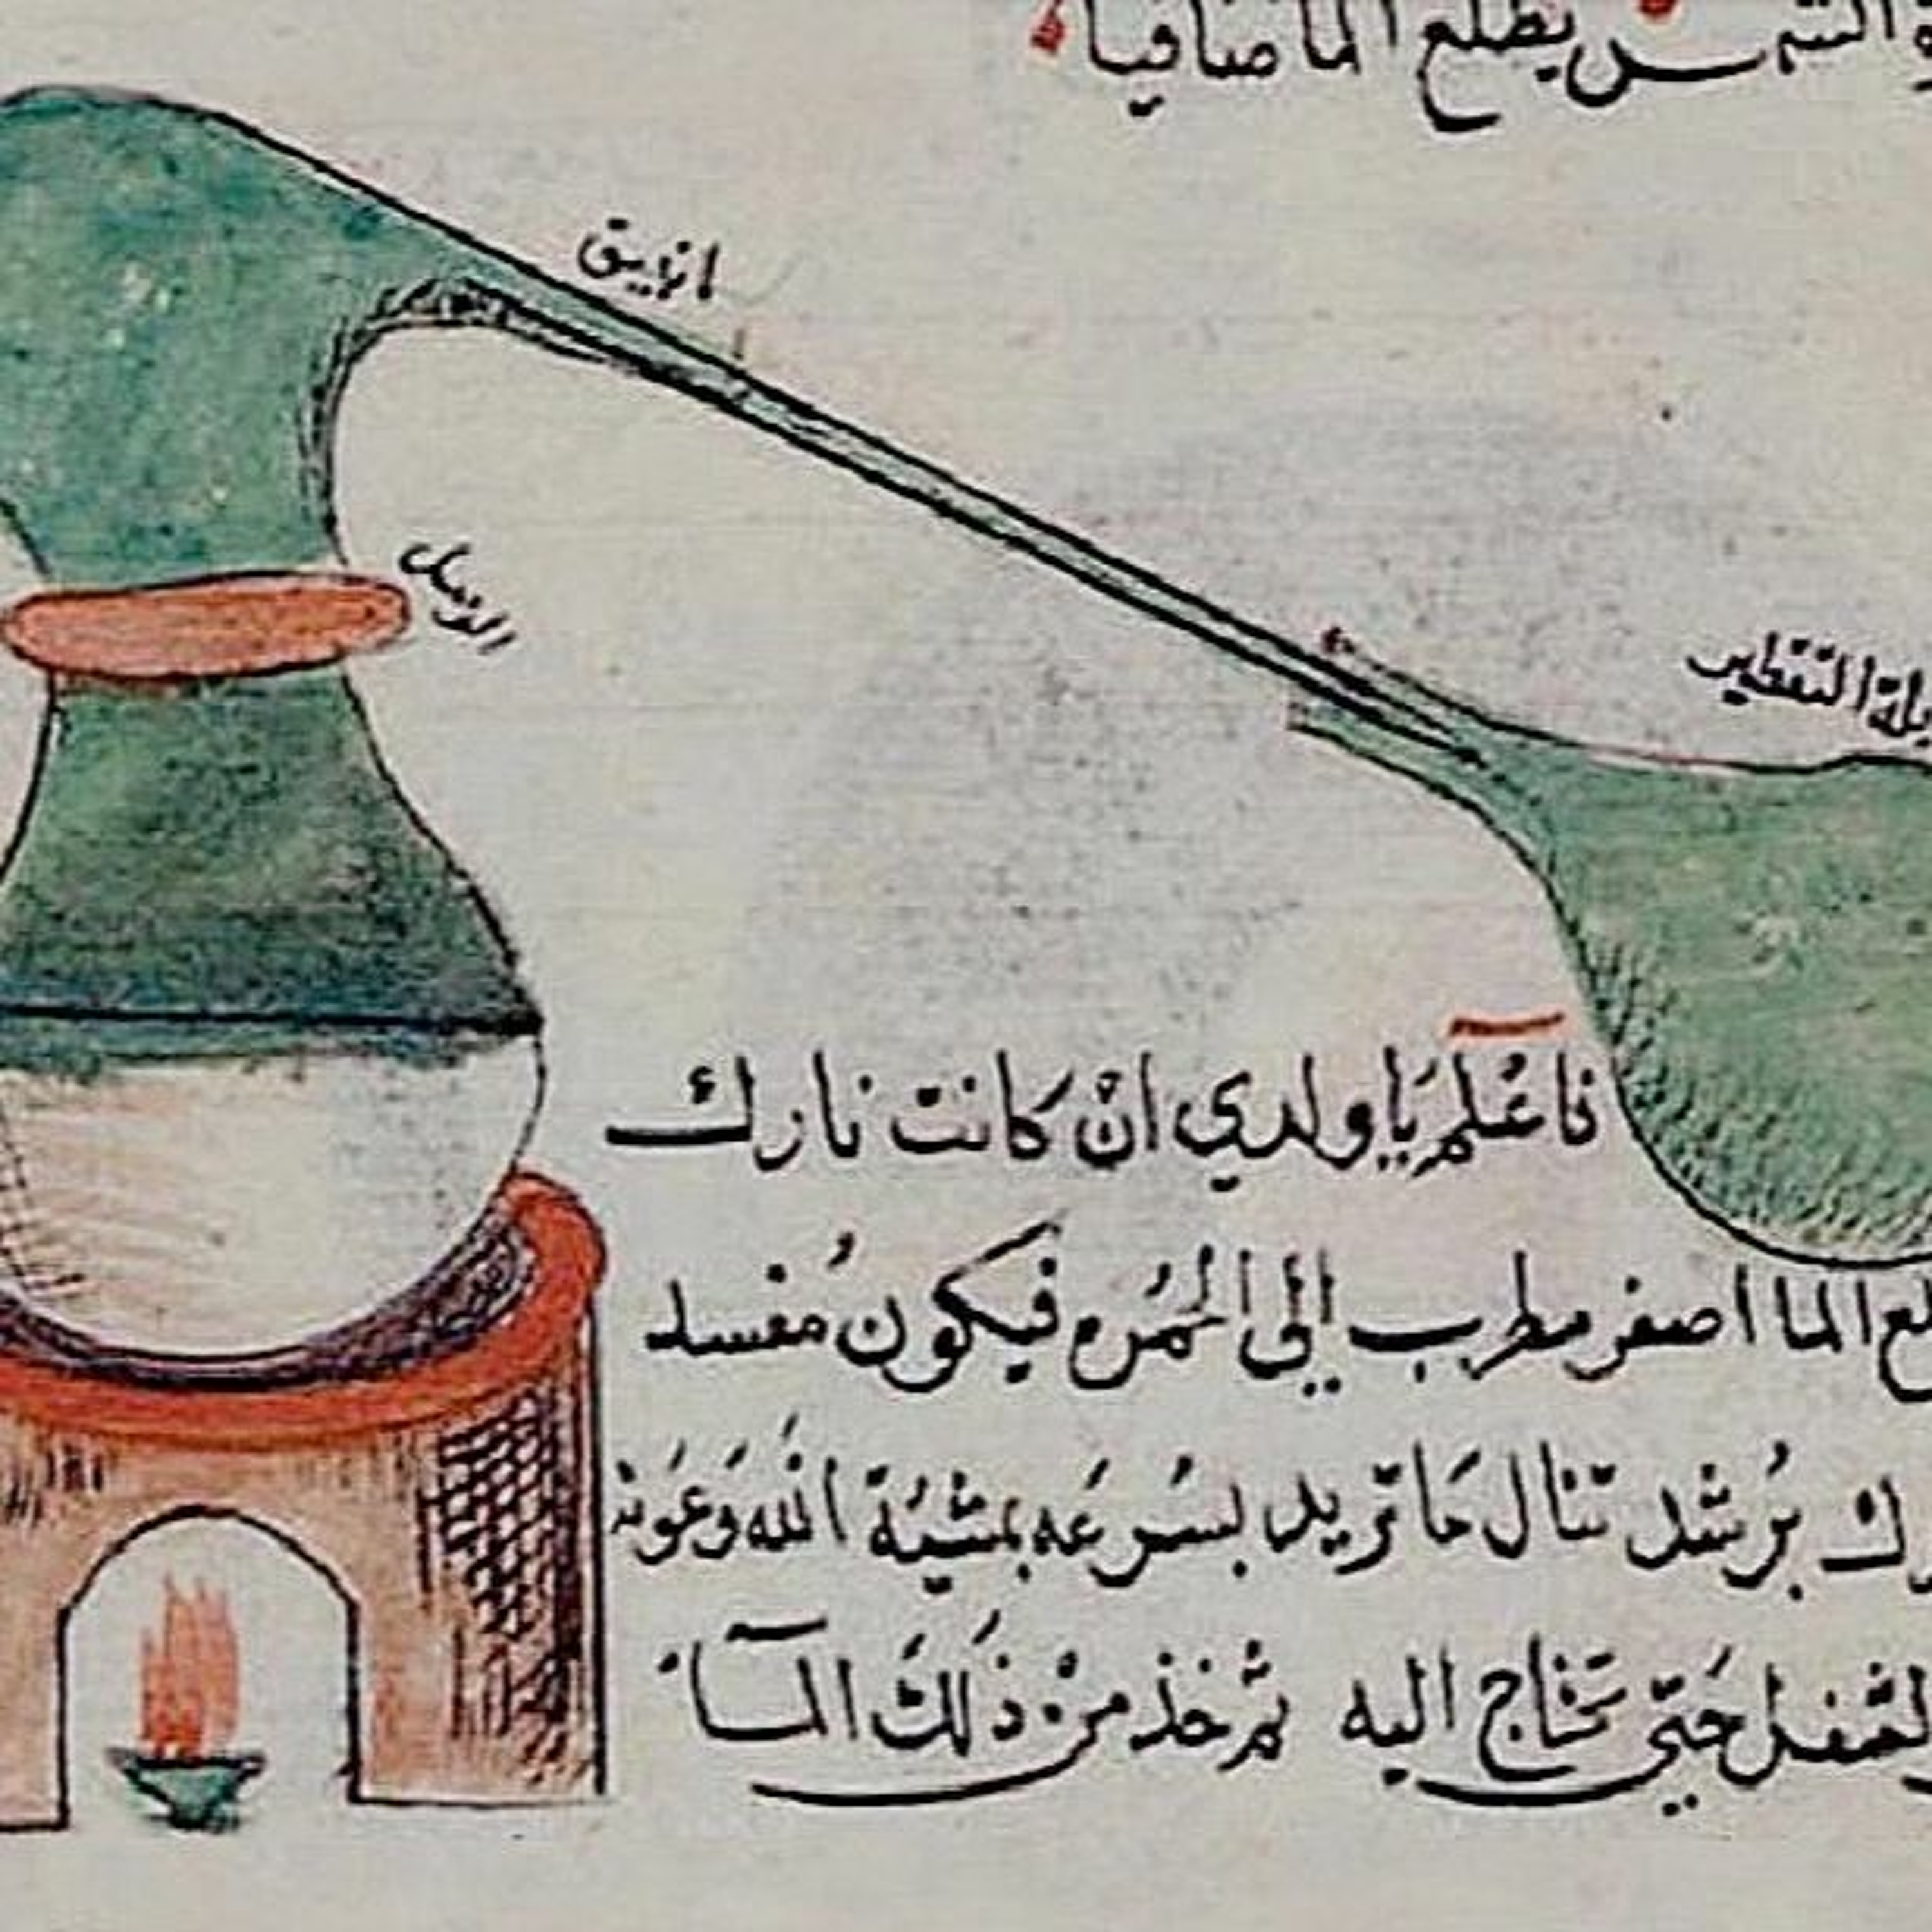 الشمس يطلع الما صافيا
انبيق
الوصل
التقطير
فاعْلم يَا ولدي انْ كانت نارك
الما اصفر مطرب إلى الحُمُره فيكون مُفسد
بُرشد تنال مَا تريد بسُرعَه بمشيُة الله وَعَونه
حَتى تحتاج اليه ثم خذ منْ ذَلكَ المآ